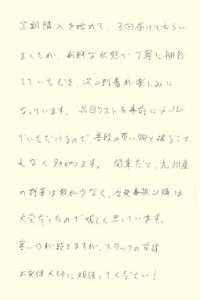 定期購入を始めて、3回届けてもらい
ましたが、新鮮な状態で丁寧に梱包
していただき、次の到着が楽しみに
なっています。品目リストを事前にメール
でいただけるので、普段の買い物と被ること
もなく助かります。関東だと、九州産
の野菜は数が少なく、原発事故以降は
大変だったので嬉しく思っています。
寒い日が続きますが、スタッフの皆様
お身体大切に頑張ってください！